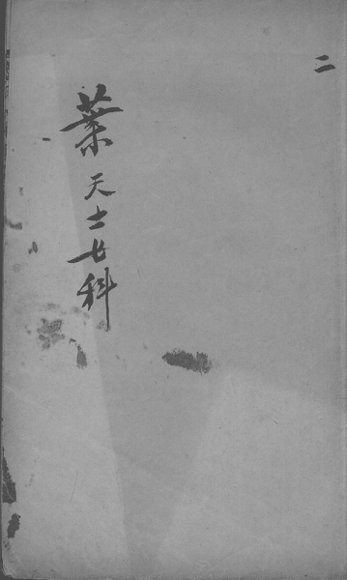 二
葉天士女科